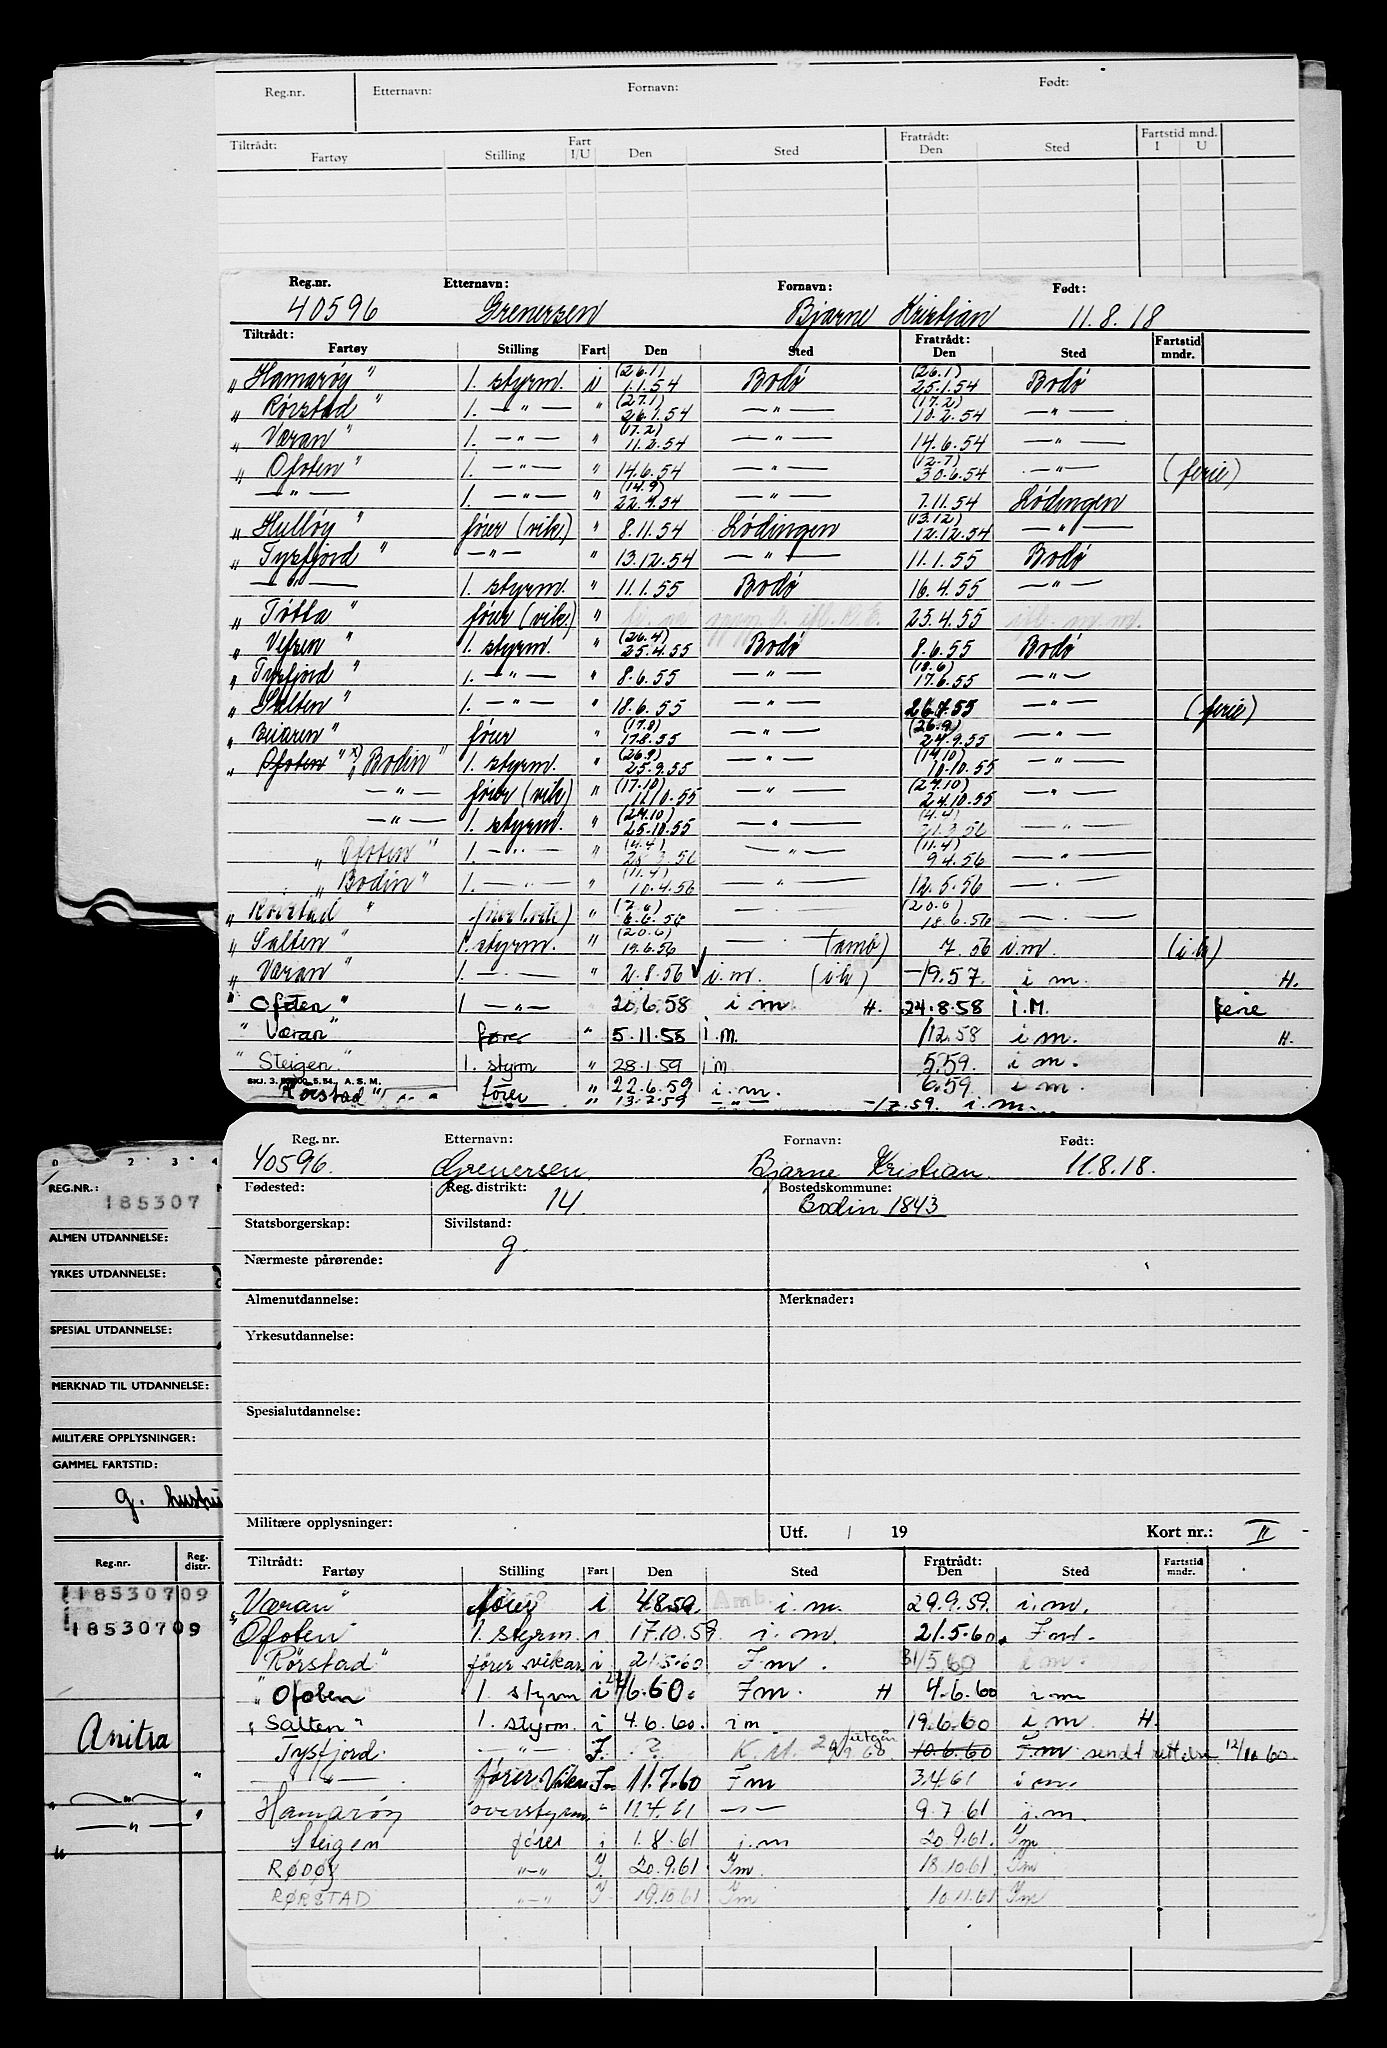 Reg.nr. Etternavn: Fornavn: Født:
Tiltrådt: Fartøy Stilling Fart I/U Den Sted Fratrådt: Den Sted Fartstid mnd. I U
Reg.nr. Etternavn: Fornavn: Født:
40596 Grenersen Bjarne Kristian 11.8.18
Tiltrådt: Fartøy Stilling Fart Den Sted Fratrådt: Den Sted Fartstid mndr.
"Hamarøy" 1. styrm. i (26.1) 1.1.54 Bodø (26.1) 25.1.54 Bodø
"Rørstad" 1. —"— " (27.1) 26.1.54 —"— (17.2) 10.2.54 —"—
"Væran" 1. —"— " (17.2) 11.2.54 —"— 14.6.54 —"—
"Ofoten" 1. —"— " 14.6.54 —"— (12.7) 30.6.54 —"— (ferie)
—"— 1. —"— " (14.9) —"— 7.11.54 Lødingen
"Hulløy" fører (vik.) " 8.11.54 Lødingen (13.12) 12.12.54 —"—
"Tysfjord" —"— " 13.12.54 —"— 11.1.55 Bodø
—"— 1. styrm. " 11.1.55 Bodø 16.4.55 —"—
"Tøtta" fører (vik.) " 25.4.55
"Vefsen" 1. styrm. " (26.4) 25.4.55 Bodø 8.6.55 Bodø
"Tysfjord" 1. —"— " 8.6.55 —"— (18.6) 17.6.55 —"—
"Salten" 1. —"— " 18.6.55 —"— 26.7.55 —"— (ferie)
"Beiaren" fører " 17.8.55 —"— (26.9) 24.9.55 —"—
"Ofoten" x) "Bodin" 1. styrm. " (26.9) 25.9.55 —"— (14.10) 10.10.55 —"—
—"— fører (vik) " (17.10) —"— (27.10) 24.10.55 —"—
—"— 1. styrm. " (27.10) 25.10.55 —"— (4.4) —"—
"Ofoten" 1. —"— " (4.4) —"— (11.4) 9.4.56 —"—
"Bodin" 1. —"— " (11.4) 10.4.56 —"— 12.5.56 —"—
"Rørstad" " (7.6) 6.6.56 —"— (20.6) 18.6.56 —"—
"Salten" 1. styrm. " (20.6) 19.6.56 —"— 7.56 i.m. (i.h)
"Væran" 1. —"— " 2.8.56 i.m. (i.h) 19.57 i m. H.
"Ofoten" 1 —"— 20.6.58 i m H. 24.8.58 I.M. ferie
"Væran" fører " 5.11.58 i.m. 1/12.58 i m. H.
"Steigen" 1. styrm " 28.1.59 i m 5/5.59. i m.
SKJ. 3. A.S.M. fører " 22.6.59 i.m. 6.59 i m.
"Rørstad" " 13.7.59 —"— -17.59. i.m.
Reg.nr. Etternavn: Fornavn: Født:
40596. Grenersen Bjarne Kristian. 11.8.18.
Fødested: Reg. distrikt: 14 Bostedskommune: Bodin 1843
Statsborgerskap: Sivilstand: g.
Nærmeste pårørende:
Almenutdannelse: Merknader:
Yrkesutdannelse:
Spesialutdannelse:
Militære opplysninger: Utf. / 19 Kort nr.: II
Tiltrådt: Fartøy Stilling Fart Den Sted Fratrådt: Den Sted Fartstid mndr.
Væran" fører i. 4.8.59. i.m. 29.9.59. i.m.
Ofoten" 1. styrm. i 17.10.59. i. m. 21.5.60. I.m.
"Rørstad" fører vikar. i 21.5.60 I.m. 31/5 60
"Ofoten" 1. styrm i I.m. H 4.6.60 i m
"Salten" 1. styrm. i 4.6.60. i m 19.6.60 i m. H.
Tysfjord. —"— I. ? utgår 10.6.60 I.m. sendt rettelse 12/10 60.
—"— fører Vikar I. 11.7.60 I m 3.4.61 i m.
Hamarøy overstyrm. " 11.4.61 —"— 9.7.61 i.m.
Steigen fører i 1.8.61 i.m 20.9.61. I m
RØDØY —"— I. 20.9.61 I m. 18.10.61. I m
RØRSTAD —"— I. 19.10.61 I m 10.11.61 I m
0 2 3 4
REG.NR.: 185307
ALMEN UTDANNELSE:
YRKES UTDANNELSE:
SPESIAL UTDANNELSE:
MERKNAD TIL UTDANNELSE:
MILITÆRE OPPLYSNINGER:
GAMMEL FARTSTID:
g. hustru
Reg.nr. Reg. distr.
18530709
18530709
Anitra
"
—"— "
—"— "
"